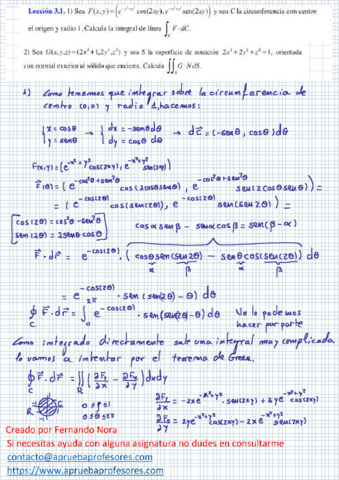 Lección 3.1. 1) Sea F(x,y) = (e^{-x²+y²} cos(2xy), e^{-x²+y²} sen(2xy)) y sea C la circunferencia con centro
el origen y radio 1. Calcula la integral de línea ∫_C F·dC.
2) Sea G(x,y,z) = (2x³+1, 2y³, z³) y sea S la superficie de ecuación 2x²+2y²+z²=1, orientada
con normal exterior al sólido que encierra. Calcula ∬_S G·N dS.
1) Como tenemos que integrar sobre la circunferencia de
centro (0,0) y radio 1, hacemos:
{x = cosθ → {dx = -senθ dθ → dr⃗ = (-senθ, cosθ) dθ
{y = senθ {dy = cosθ dθ
F(x,y) = (e^{-x²+y²} cos(2xy), e^{-x²+y²} sen(2xy))
F⃗(θ) = (e^{-cos²θ+sen²θ} cos(2cosθsenθ), e^{-cos²θ+sen²θ} sen(2cosθsenθ)) =
= (e^{-cos(2θ)} cos(sen(2θ)), e^{-cos(2θ)} sen(sen(2θ))) =
cos(2θ) = cos²θ - sen²θ
sen(2θ) = 2senθ cosθ
cosα senβ - senα cosβ = sen(β-α)
F⃗·dr⃗ = e^{-cos(2θ)} · (cosθ sen(sen(2θ)) - senθ cos(sen(2θ))) dθ
α β α β
= e^{-cos(2θ)} · sen(sen(2θ) - θ) dθ
∮_C F⃗·dr⃗ = ∫_0^{2π} e^{-cos(2θ)} · sen(sen(2θ) - θ) dθ No lo podemos
hacer por parte
Como integrado directamente sale una integral muy complicada
lo vamos a intentar por el teorema de Green.
∮_C F⃗·dr⃗ = ∬_R (∂F₂/∂x - ∂F₁/∂y) dxdy
R 0≤ρ≤1
0≤θ≤2π
∂F₂/∂x = -2x e^{-x²+y²} · sen(2xy) + 2y e^{-x²+y²} cos(2xy)
∂F₁/∂y = 2y e^{-x²+y²} cos(2xy) - 2x e^{-x²+y²} sen(2xy)
Creado por Fernando Nora
Si necesitas ayuda con alguna asignatura no dudes en consultarme
contacto@apruebaprofesores.com
https://www.apruebaprofesores.com